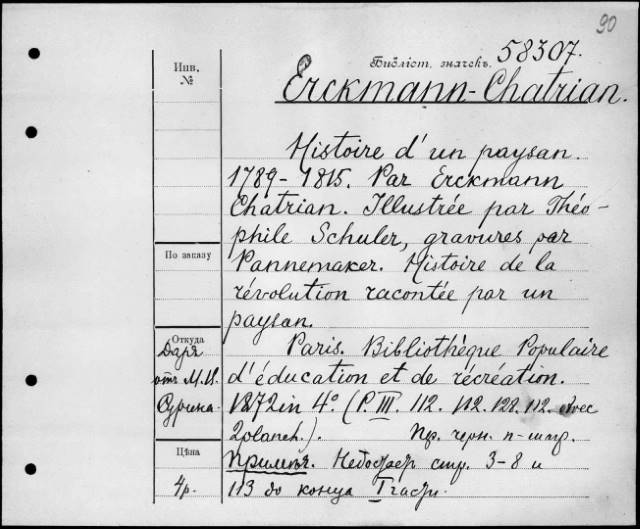 90
Библіот. значекъ. 58307.
Инв.
№
Erckmann-Chatrian.
Histoire d'un paysan.
1789-1815. Par Erckmann
Chatrian. Illustrée par Théo-
phile Schuler, gravures par
По заказу
Pannemaker. Histoire de la
révolution racontée par un
paysan.
Откуда
отъ М.И.
Paris. Bibliothèque Populaire
d'éducation et de récréation.
1872 in 4° (P. III. 112. 112. 128. 112. avec
2 planch.).
Цѣна
4р.
Примѣч. Недостаер стр. 3-8 и
113 до конца I части.